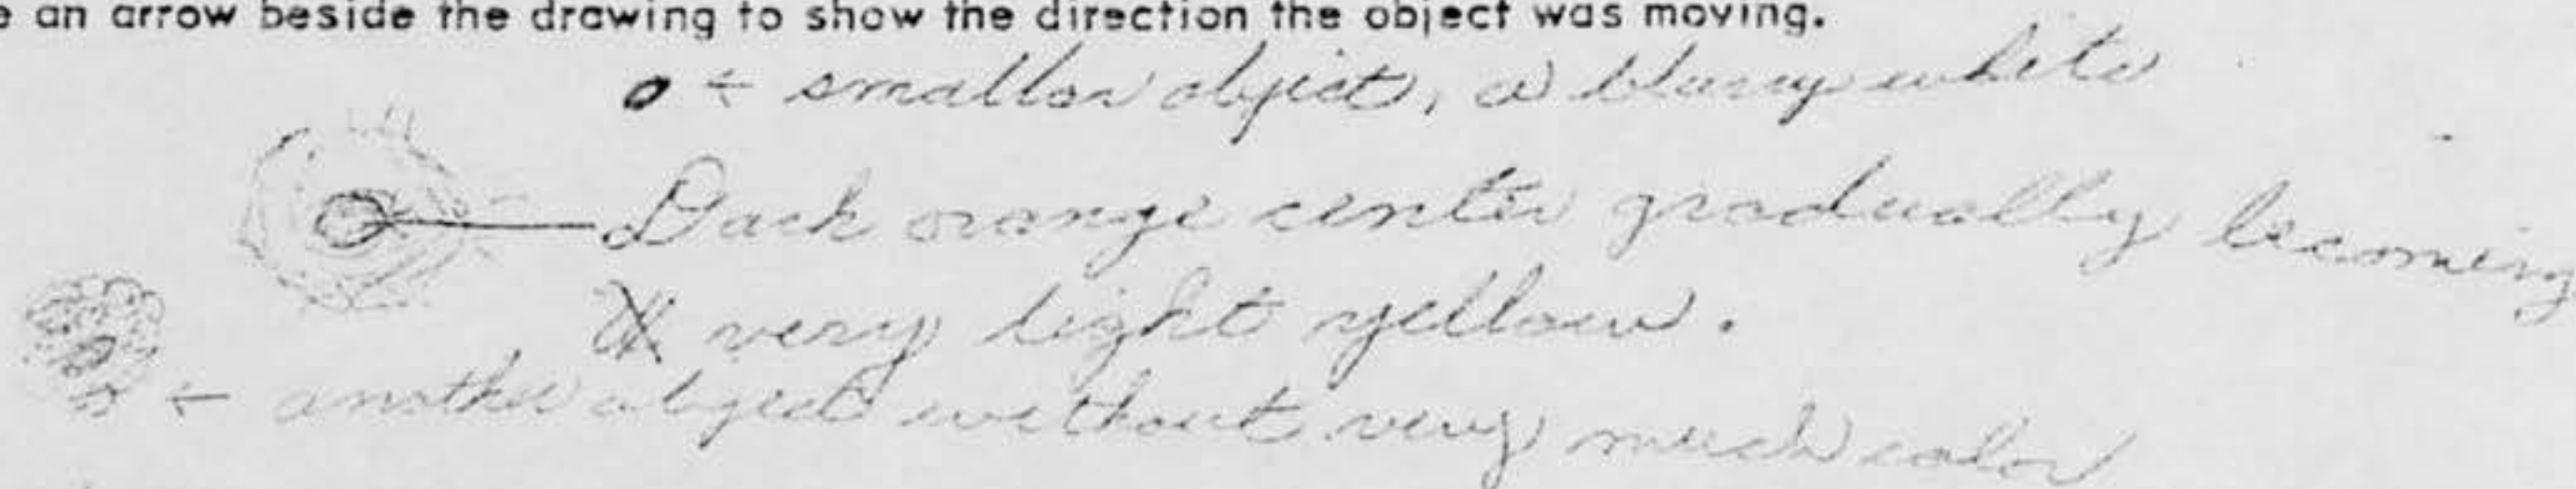 e an arrow beside the drawing to show the direction the object was moving.
← smaller object, a blurry white
Dark orange center gradually becoming
very light yellow.
← another object without very much color